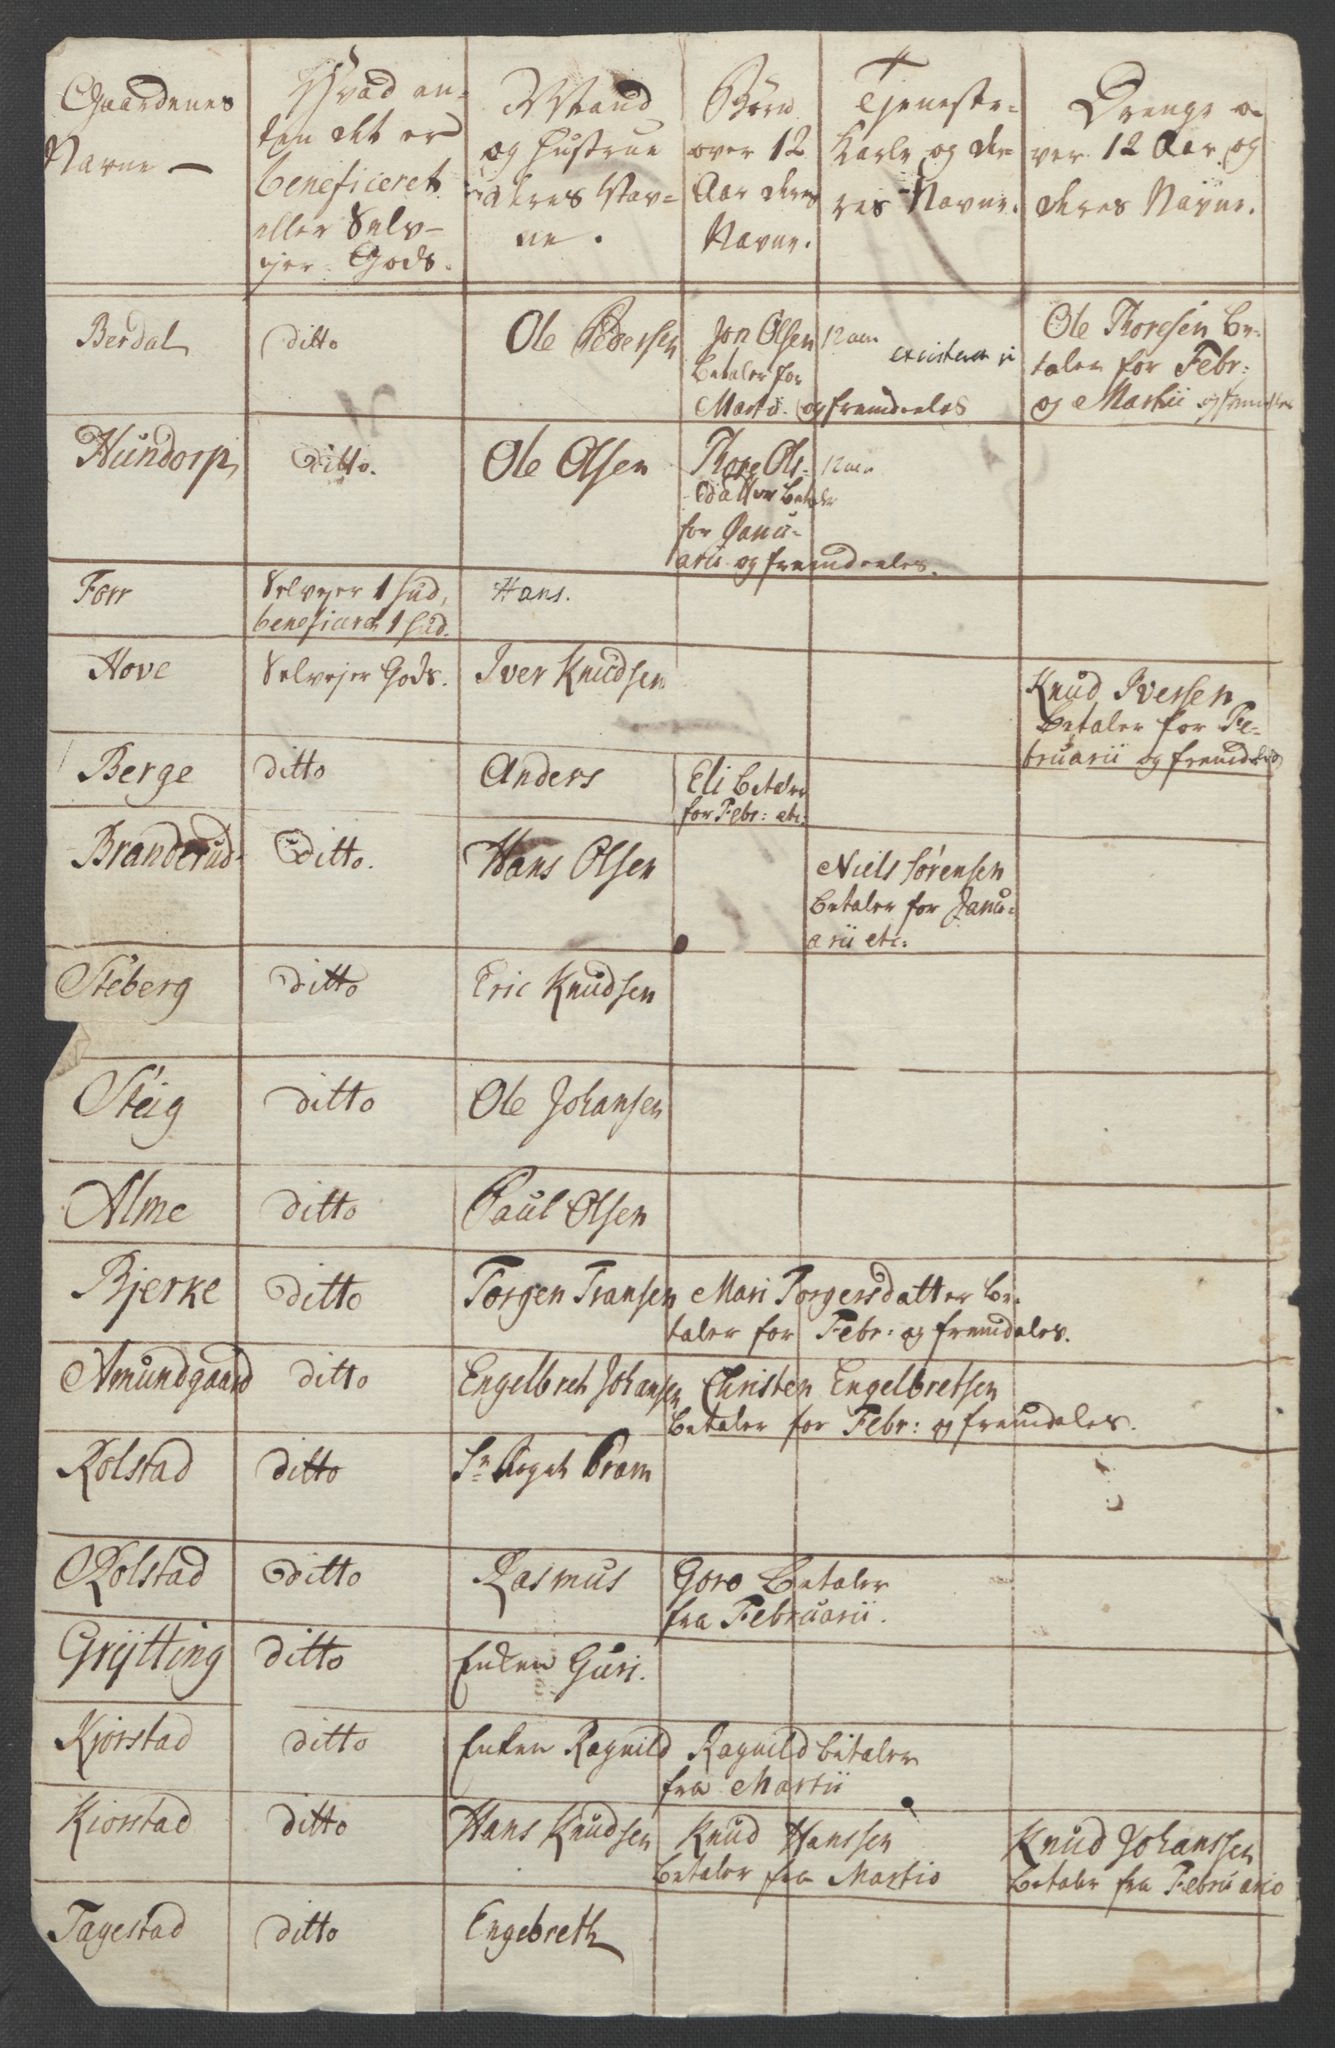 Gaardenes
Navne —
Hvad en-
ten det er
beneficeret
eller Selv-
ejer Gods.
Mand
og Hustrue
deres Nav-
ne.
Børn
over 12
Aar deres
Navne.
Tjeneste-
Karle og de-
res Navne.
Drenge o-
ver 12 Aar og
deres Navne.
Berdal ditto Ole Pedersen Jon Olsen 12 aar
betaler for
Martii og fremdeeles
Ole Thoresen be-
taler for Febr:
og Martii og
Hundorp ditto. Ole Olsen Thore Ols- 12 aar
datter betaler
for Janu-
arii og fremdeeles.
Forr Selvejer 1 hud, Hans.
beneficeret 1 hud.
Hove Selvejer Gods. Iver Knudsen Knud Iversen
betaler for Fe-
bruarii og
Berge ditto Anders Eli betaler
for Febr: etc.
Branderud ditto. Hans Olsen Niels Sørensen
betaler for Janu-
arii etc.
Steberg ditto Eric Knudsen
Steig ditto Ole Johansen
Alme ditto Paul Olsen
Bjerke ditto Torgen Transen Mari Torgersdatter be-
taler for Febr: og fremdeles.
Amundgaard ditto Engelbret Johansen Christen Engelbretsen
betaler for Febr: og fremdeles.
Kolstad ditto Sr Pram
Kolstad ditto Rasmus Goro betaler
fra Februarii.
Grytting ditto Enken Guri.
Kjorstad ditto Enken Ragnild Ragnild betaler
fra Martii
Kiorstad ditto Hans Knudsen Knud Hanssen Knud Johanssen
betaler fra Martio betaler fra Februario
Tagestad ditto Engebreth